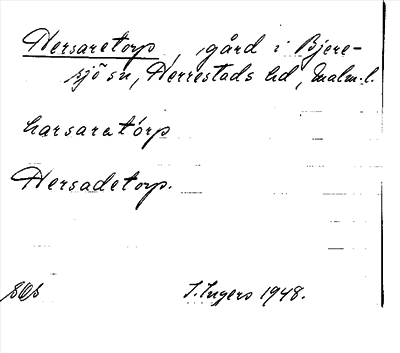 Hersaretorp, gård i Bjere-
sjö sn, Herrestads hd, Malm. l.
harsaratorp
Hersadetorp.
I. Ingers 1948.